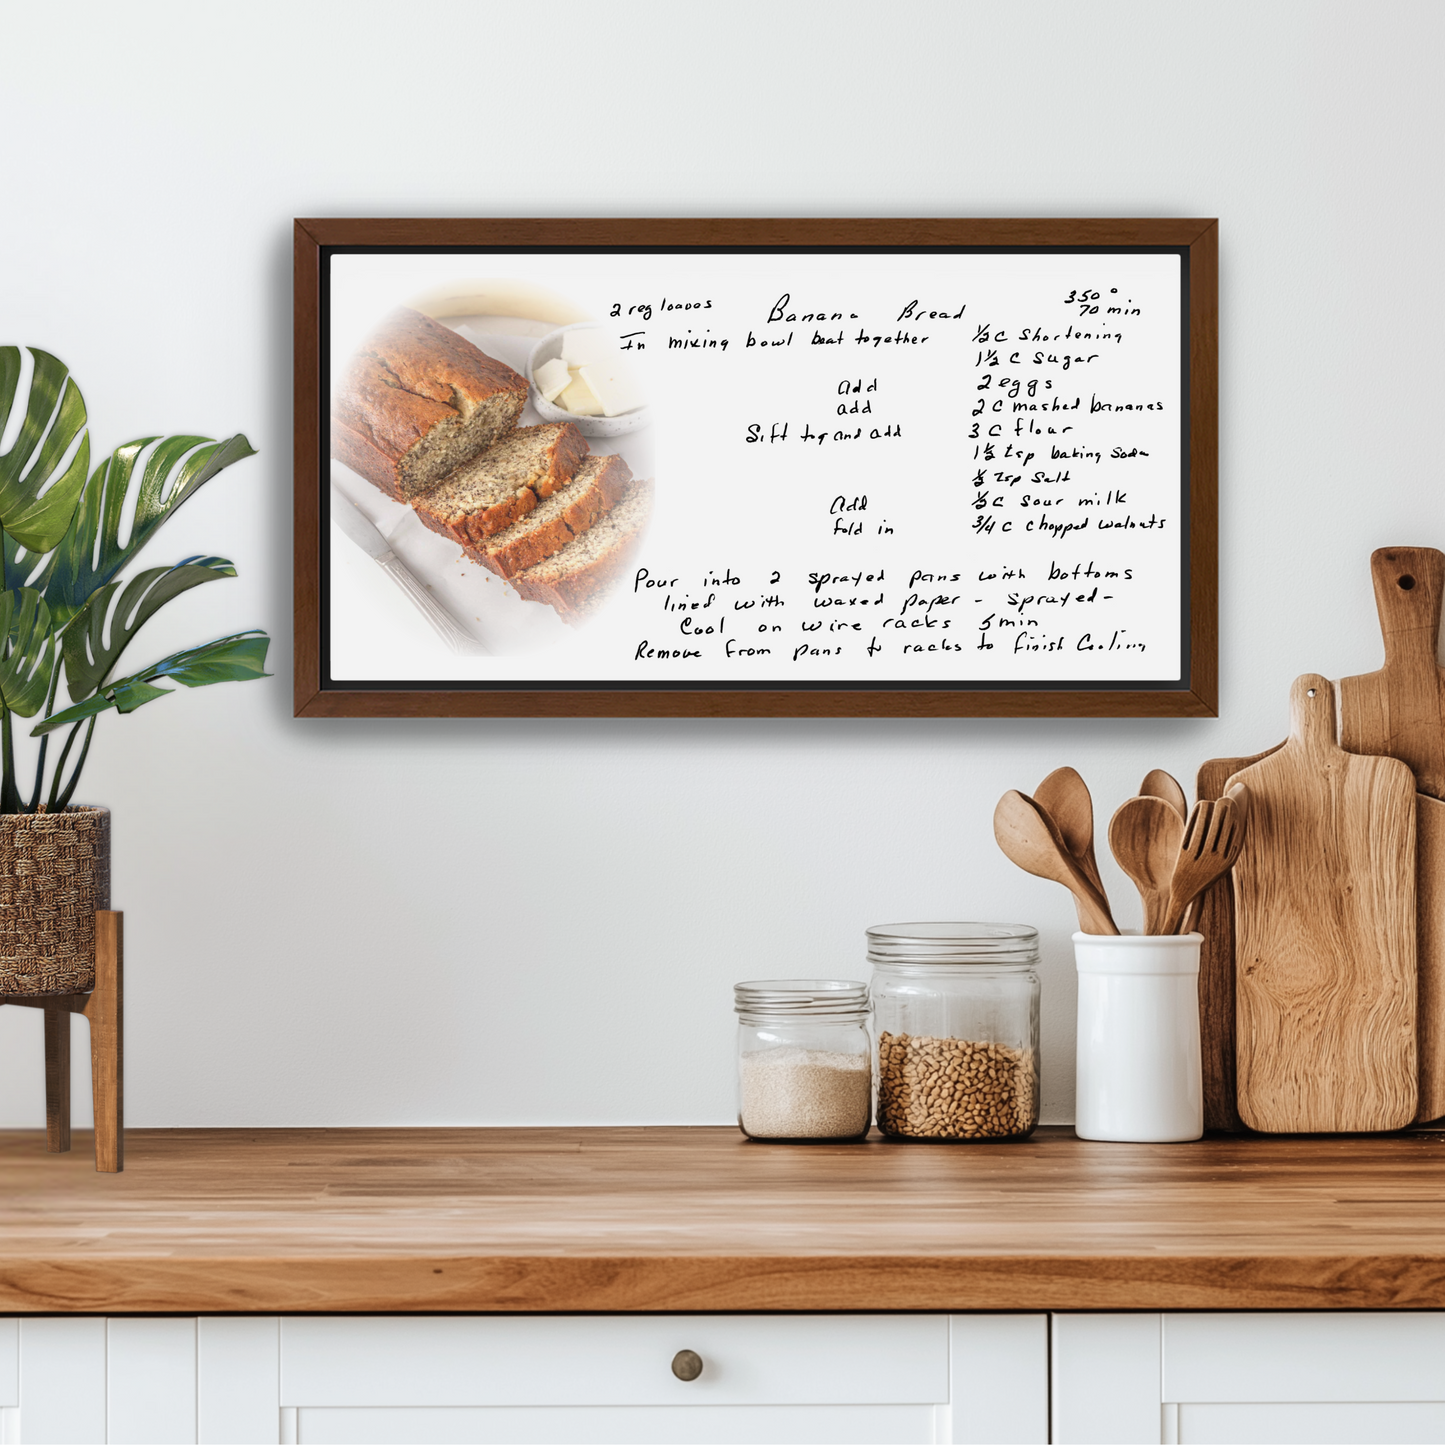 2 reg loaves Banana Bread 350°
70 min
In mixing bowl beat together ½ c shortening
1½ c sugar
add 2 eggs
add 2 c mashed bananas
Sift tog and add 3 c flour
1½ tsp baking soda
½ tsp salt
Add ½ c sour milk
fold in 3/4 c chopped walnuts
Pour into 2 sprayed pans with bottoms
lined with waxed paper - sprayed-
Cool on wire racks 5 min
Remove from pans to racks to finish cooling